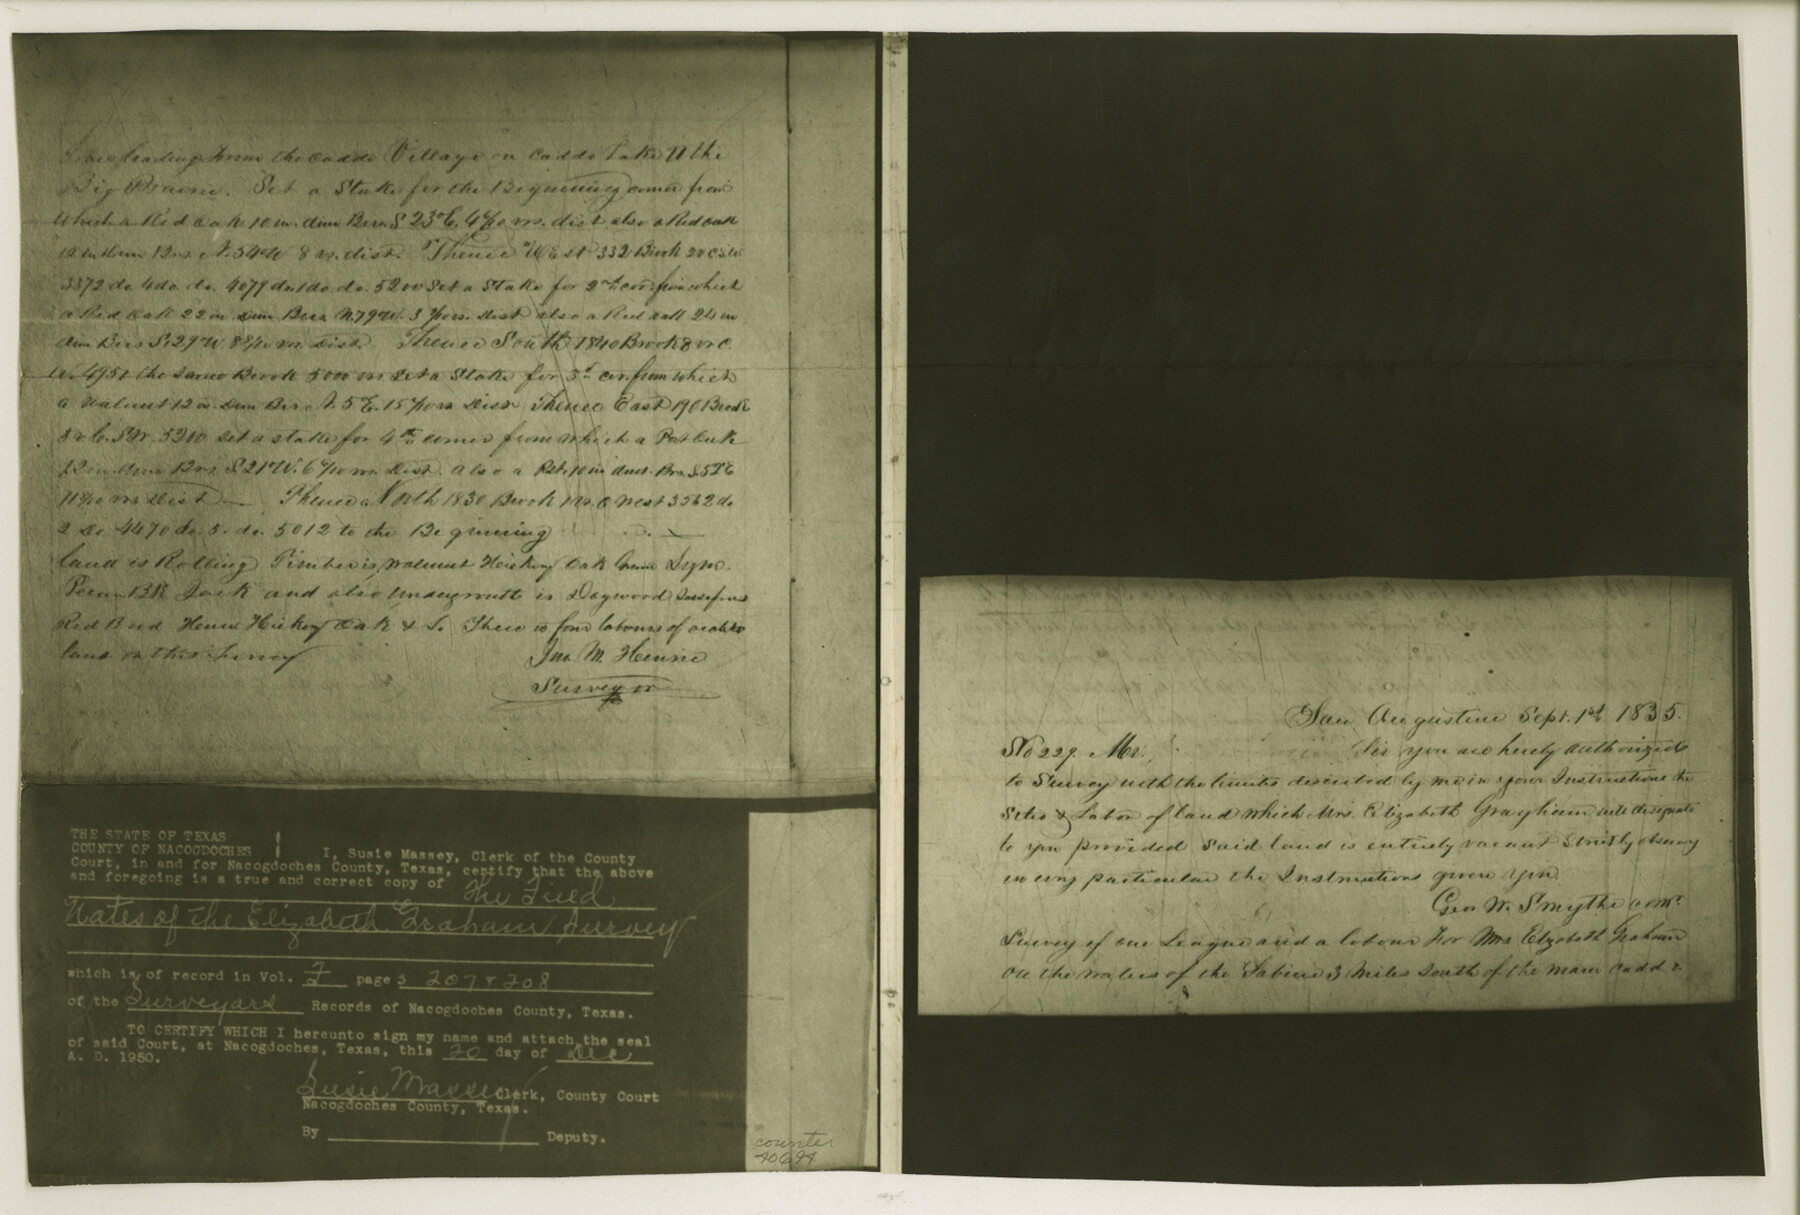 Trace leading from the Caddo Village on Caddo Lake N the
Big Prairie. Set a Stake for the Beginning corner from
which a Red Oak 10 in. dim Brs S 23 E. 4 6/10 vrs. dist also a Red oak
12 in dim Brs N. 54 W 8 vrs. dist. Thence West 332 Brook 2 v C. S. W.
3372 do 4 do. do. 4079 do 1 do. do. 5200 Set a Stake for 2nd cor. from which
a Red Oak 22 in dim Bers N. 79 W. 3 /10 vrs. dist also a Red oak 24 in
dim Bers S. 29 W. 8 8/10 vrs. Dist. Thence South 1840 Brook 8 vr C.
W. 4951 the same Brook 5000 vrs set a Stake for 3d cor. from which
a walnut 12 in. dim Brs N. 5 E. 15 /10 vrs Dist Thence East 190 Brook
8 v C. S. W. 5200 set a stake for 4th corner from which a Post Oak
12 in dim Brs. S. 21 W. 6 /10 vrs. Dist. also a Pst. 10 in dim. Brs. S. 52 E
11 8/10 vrs Dist — Thence North 1830 Brook 1 vr. C West 3562 do
2 do 4470 do. 5. do. 5012 to the Beginning
land is Rolling Timber is, walnut Hickory Oak
Pecan Blk Jack and also undergrowth is Dogwood Sassafras
Red Bud Hickory Oak & S. There is four labours of arable
land on this Survey
Jno. M. Henrie
Surveyor
THE STATE OF TEXAS
COUNTY OF NACOGDOCHES
I, Susie Massey, Clerk of the County
Court, in and for Nacogdoches County, Texas, certify that the above
and foregoing is a true and correct copy of The Field
Notes of the Elizabeth Graham Survey
which is of record in Vol. F pages 207 & 208
of the Surveyors Records of Nacogdoches County, Texas.
TO CERTIFY WHICH I hereunto sign my name and attach the seal
of said Court, at Nacogdoches, Texas, this 20 day of Dec
A. D. 1950.
Susie Massey Clerk, County Court
Nacogdoches County, Texas.
By Deputy.
counter
40694
San Augustine Sept. 1st 1835.
No 229. Mr. Sir you are hereby authorized
to Survey with the limits described by me in your Instructions the
Sitio & Labor of land which Mrs. Elizabeth Grayham will designate
to you provided Said land is entirely vacant Strictly observing
in every particular the Instructions given you.
Geo W. Smythe comr.
Survey of one League and a labour For Mrs Elizabeth Graham
on the waters of the Sabine 3 miles South of the main Caddo